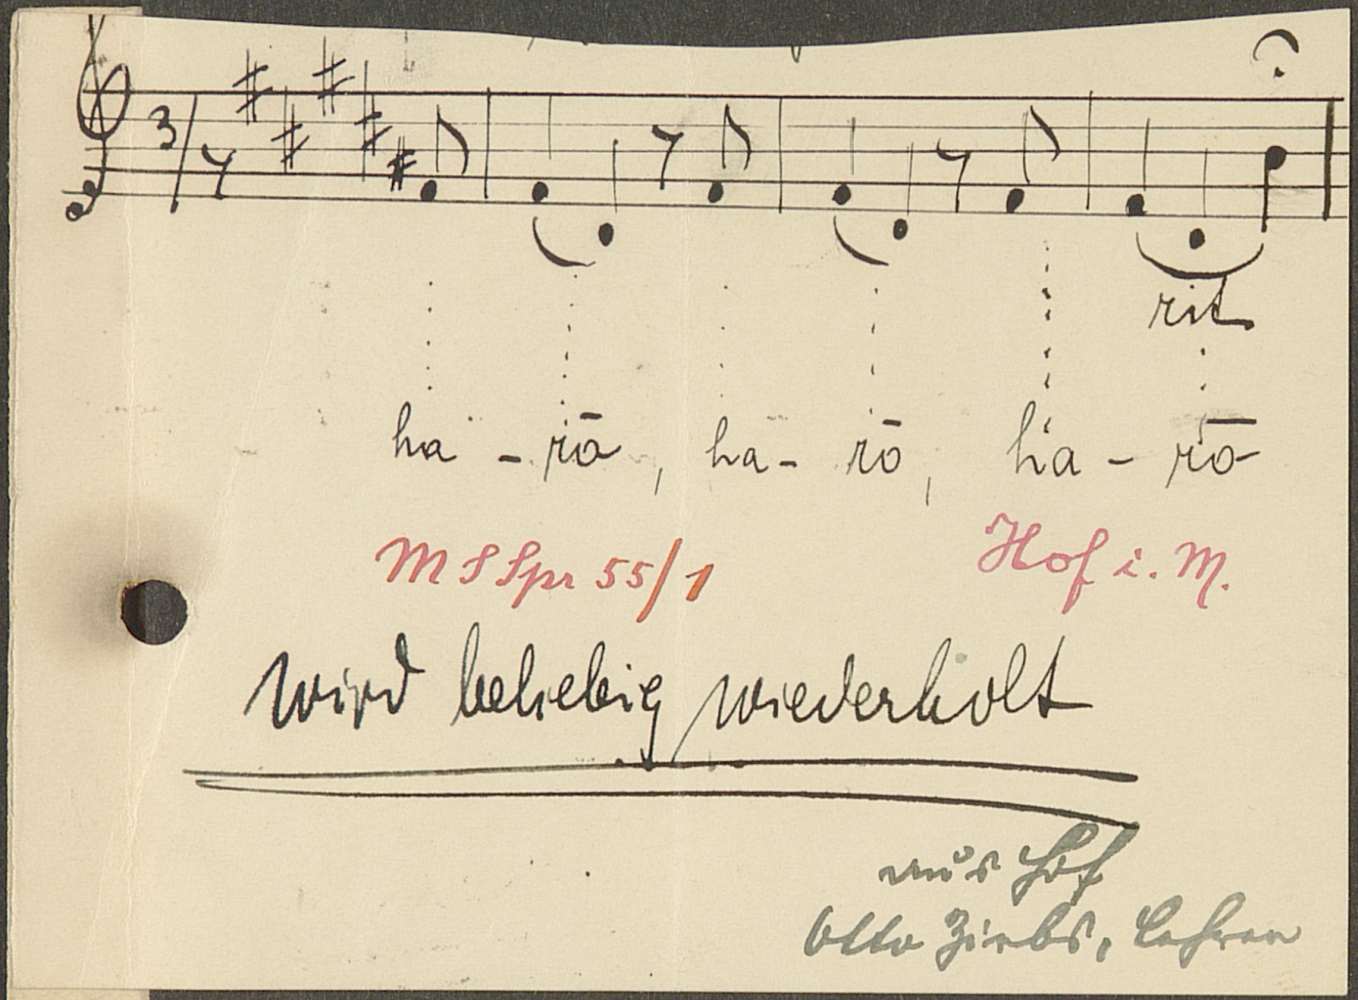 3
rit
ha - rō, ha - rō, ha - rō
M S Spr 55/1 Hof i. M.
wird beliebig wiederholt
aus Hof
Otto Zirbs, Lehrer